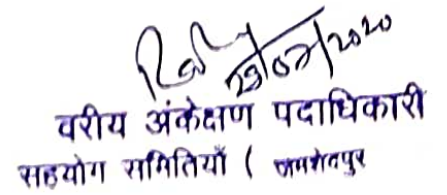 29/07/2020
वरीय अंकेक्षण पदाधिकारी
सहयोग समितियाँ ( जमशेदपुर